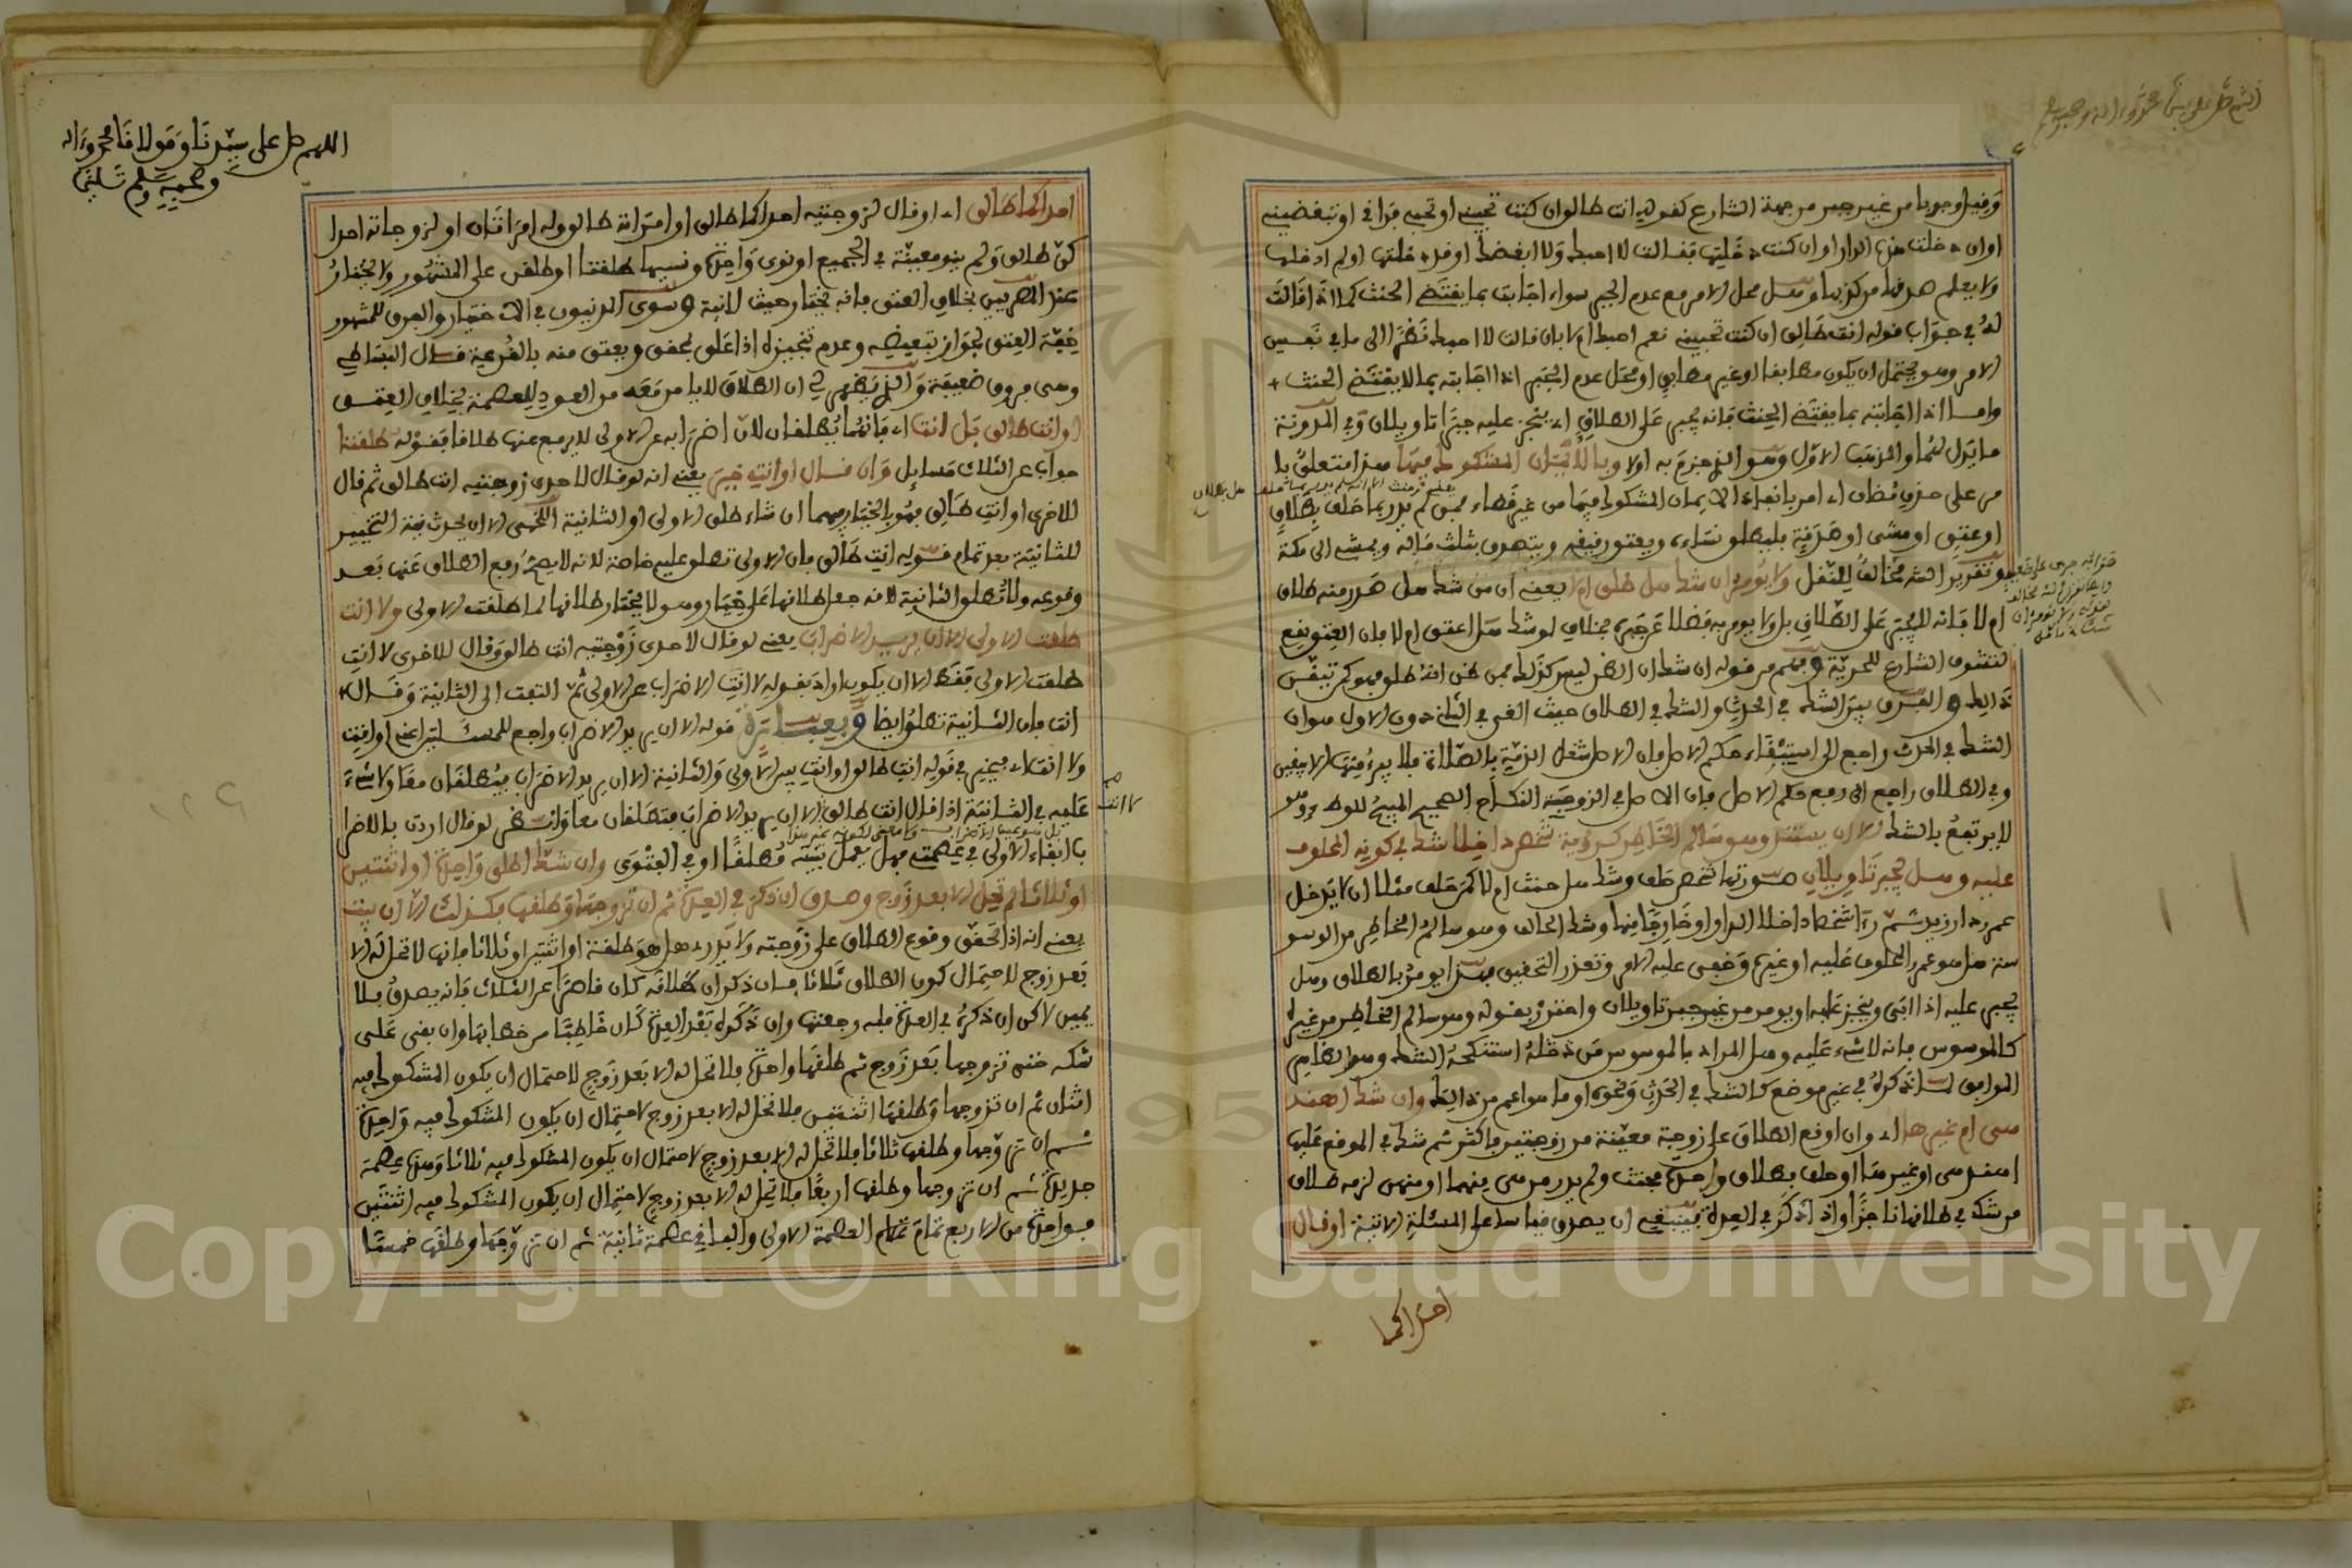 وقيل وجوبا من غير جبر من جهة الشارع كقوله انت طالق ان كنت تحبيني او تحبي فراقي او تبغضيني
او ان دخلت هذه الدار او ان كنت دخلتها فقالت لا احبك ولا ابغضك او قد دخلتها او لم ادخلها
ولا يعلم صدقها من كذبها وهل محل الامر مع عدم الجبر سواء اجابت بما يقتضي الحنث كما اذا قالت
له في جواب قوله انت طالق ان كنت تحبيني نعم احبك ام لا بان قالت لا احبك نظرا الى ما في نفس
الامر وهو يحتمل ان يكون مطابقا او غير مطابق او محل عدم الجبر اذا اجابته بما لا يقتضي الحنث
واما اذا اجابته بما يقتضي الحنث فانه يجبر على الطلاق اي ينجز عليه جبرا تاويلان وفي المدونة
ما يدل لهما والمذهب الاول وهو الذي جزم به اولا وبالايمان المشكوك فيها هذا متعلق بما
مر على حذف مضاف اي امر بانفاذ الايمان المشكوك فيها من غير قضاء فمن لم يدر بما حلف بطلاق
او عتق او مشي او صدقة فليطلق نساءه ويعتق رقيقه ويتصدق بثلث ماله ويمشي الى مكة
وتقرير الشـ مخالف للنقل ولا يومر ان شك هل طلق ام لا يعني ان من شك هل صدر منه طلاق
ام لا فانه لا يجبر على الطلاق بل ولا يومر به فضلا عن جبره بخلاف لو شك هل اعتق ام لا فان العتق يقع
لتشوف الشارع للحرية وفهم من قوله ان شك ان الظن ليس كذلك فمن ظن انه طلق فهو كمن تيقن
ذالك والفرق بين الشك في الحدث والشك في الطلاق حيث الغي في الثاني دون الاول هو ان
الشك في الحدث راجع الى استيفاء حكم الاصل فان الاصل شغل الذمة بالصلاة فلا يبرئ منها الا بيقين
وفي الطلاق راجع الى رفع حكم الاصل فان الاصل في الزوجية النكاح الصحيح المبيح للوطء وهو
لا يرتفع بالشك الا ان يستند وهو سالم الخاطر كرؤية شخص داخلا شك في كونه المحلوف
عليه وهل يجبر تاويلان صورتها شخص حلف وشك هل حنث ام لا كمن حلف مثلا ان لا يدخل
عمر دار زيد ثم رءا شخصا داخلا الدار او خارجا منها وشك الحالف وهو سالم الخاطر من الوسو
سة هل هو عمر المحلوف عليه او غيره وخفي عليه الامر وتعذر التحقيق هل يومر بالطلاق وهل
يجبر عليه اذا ابى وينجز عليه او يومر من غير جبر تاويلان واحترز بقوله وهو سالم الخاطر من غيره
كالموسوس فانه لا شيء عليه وهل المراد بالموسوس من دخله استنكحه الشك وهو الظاهر
الموافق لما ذكره في غير موضع كالشك في الحدث ونحوه او ما هو اعم من ذالك وان شك اهند
هي ام غيرها اي وان اوقع الطلاق على زوجة معينة من زوجتين فاكثر ثم شك في الموقع عليها
اهند هي او غيرها او حلف بطلاق واحدة فحنث ولم يدر من هي منهما او منهن لزمه طلاق
من شك في طلاقها ناجزا واذا ذكر في العدة فينبغي ان يصدق قياسا على المسئلة الاتية او قال
احداكما
اللهم صل على سيدنا ومولانا محمد واله
وصحبه وسلم تسليما
احداكما طالق اي او قال لزوجتيه احداكما طالق او امراته طالق وله امراتان او لزوجاته احدا
كن طالق ولم ينو معينة في الجميع او نوى واحدة ونسيها طلقتا او طلقن على المشهور ولا يختار
عند المصريين بخلاف العتق فانه يختار حيث لا نية وسوى المدنيون في الاختيار والفرق للمشهور
خفة العتق لجواز تبعيضه وعدم تنجيزه اذا علق بمحقق ويعتق منه بالقرعة قال البساطي
وهي فروق ضعيفة والذي يظهر لي ان الطلاق لا بد من رفعه من العود للعصمة بخلاف العتق
او انت طالق بل انت اي فانهما يطلقان لان اضرابه عن الاولى لا يرفع عنها طلاقا فقوله طلقتا
جواب عن الثلاث مسايل وان قال او انت خير يعني انه لو قال لاحدى زوجتيه انت طالق ثم قال
للاخرى او انت طالق فهو بالخيار فيهما ان شاء طلق الاولى او الثانية اللخمي الا ان يحدث نية التخيير
للثانية بعد تمام قوله انت طالق فان الاولى تطلق عليه خاصة لانه لا يصح رفع الطلاق عنها بعد
وقوعه ولا تطلق الثانية لانه جعل طلاقها على خيار وهو لا يختار طلاقها لما طلقت الاولى ولا انت
طلقت الاولى الا ان يريد الاضراب يعني لو قال لاحدى زوجتيه انت طالق وقال للاخرى لا انت
طلقت الاولى فقط الا ان يكون اراد بقوله لا انت الاضراب عن الاولى ثم التفت الى الثانية وقال
انت فان الثانية تطلق ايضا وبعبارة قوله الا ان يريد الاضراب راجع للمسئلتين اعني او انت
ولا انت اي فيخير في قوله انت طالق او انت بين الاولى والثانية الا ان يريد الاضراب فيطلقان معا ولا شيء
عليه في الثانية اذا قال انت طالق لا انت الا ان يريد الاضراب فتطلقان معا وانظر لو قال اردت بالاضرا
ب ابقاء الاولى في عصمتي فهل يعمل بنيته مطلقا او في الفتوى وان شك اطلق واحدة او اثنتين
او ثلاثا لم تحل الا بعد زوج وصدق ان ذكر في العدة ثم ان تزوجها وطلقها فكذلك الا ان يبت
يعني انه اذا تحقق وقوع الطلاق على زوجته ولا يدري هل هو طلقة او اثنتين او ثلاثا فانها لا تحل له الا
بعد زوج لاحتمال كون الطلاق ثلاثا فان ذكر ان طلاقه كان قاصرا عن الثلاث فانه يصدق بلا
يمين لاكن ان ذكر في العدة فله رجعتها وان ذكره بعد العدة كان خاطبا من خطابها وان بقي على
شكه حتى تزوجها بعد زوج ثم طلقها واحدة فلا تحل له الا بعد زوج لاحتمال ان يكون المشكوك فيه
اثنان ثم ان تزوجها وطلقها اثنتين فلا تحل له الا بعد زوج لاحتمال ان يكون المشكوك فيه واحدة
ثم ان تزوجها وطلقها ثلاثا فلا تحل له الا بعد زوج لاحتمال ان يكون المشكوك فيه ثلاثا وهذه عصمة
جديدة ثم ان تزوجها وطلقها اربعا فلا تحل له الا بعد زوج لاحتمال ان يكون المشكوك فيه اثنتين
فواحدة من الاربع تمام العصمة الاولى والباقي عصمة ثانية ثم ان تزوجها وطلقها خمسا
لا انت
Copyright © King Saud University